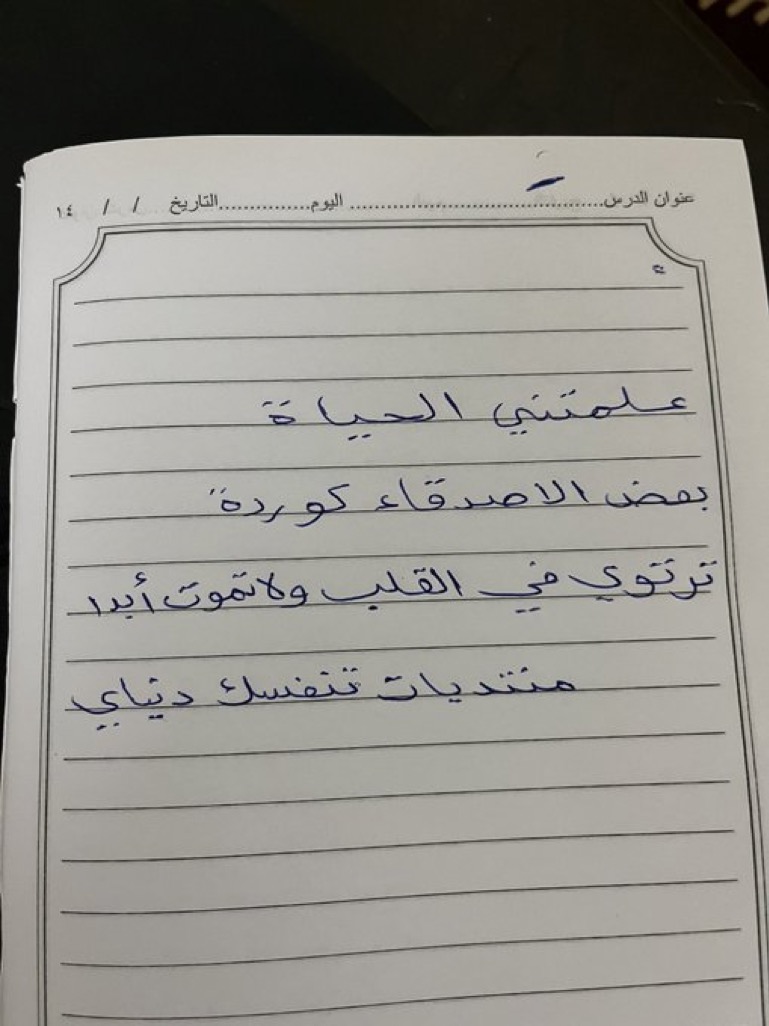 عنوان الدرس........................................ اليوم...............التاريخ / / ١٤
علمتني الحياة
بعض الاصدقاء كوردة
ترتوي في القلب ولاتموت أبدا
منتديات تنفسك دنياي